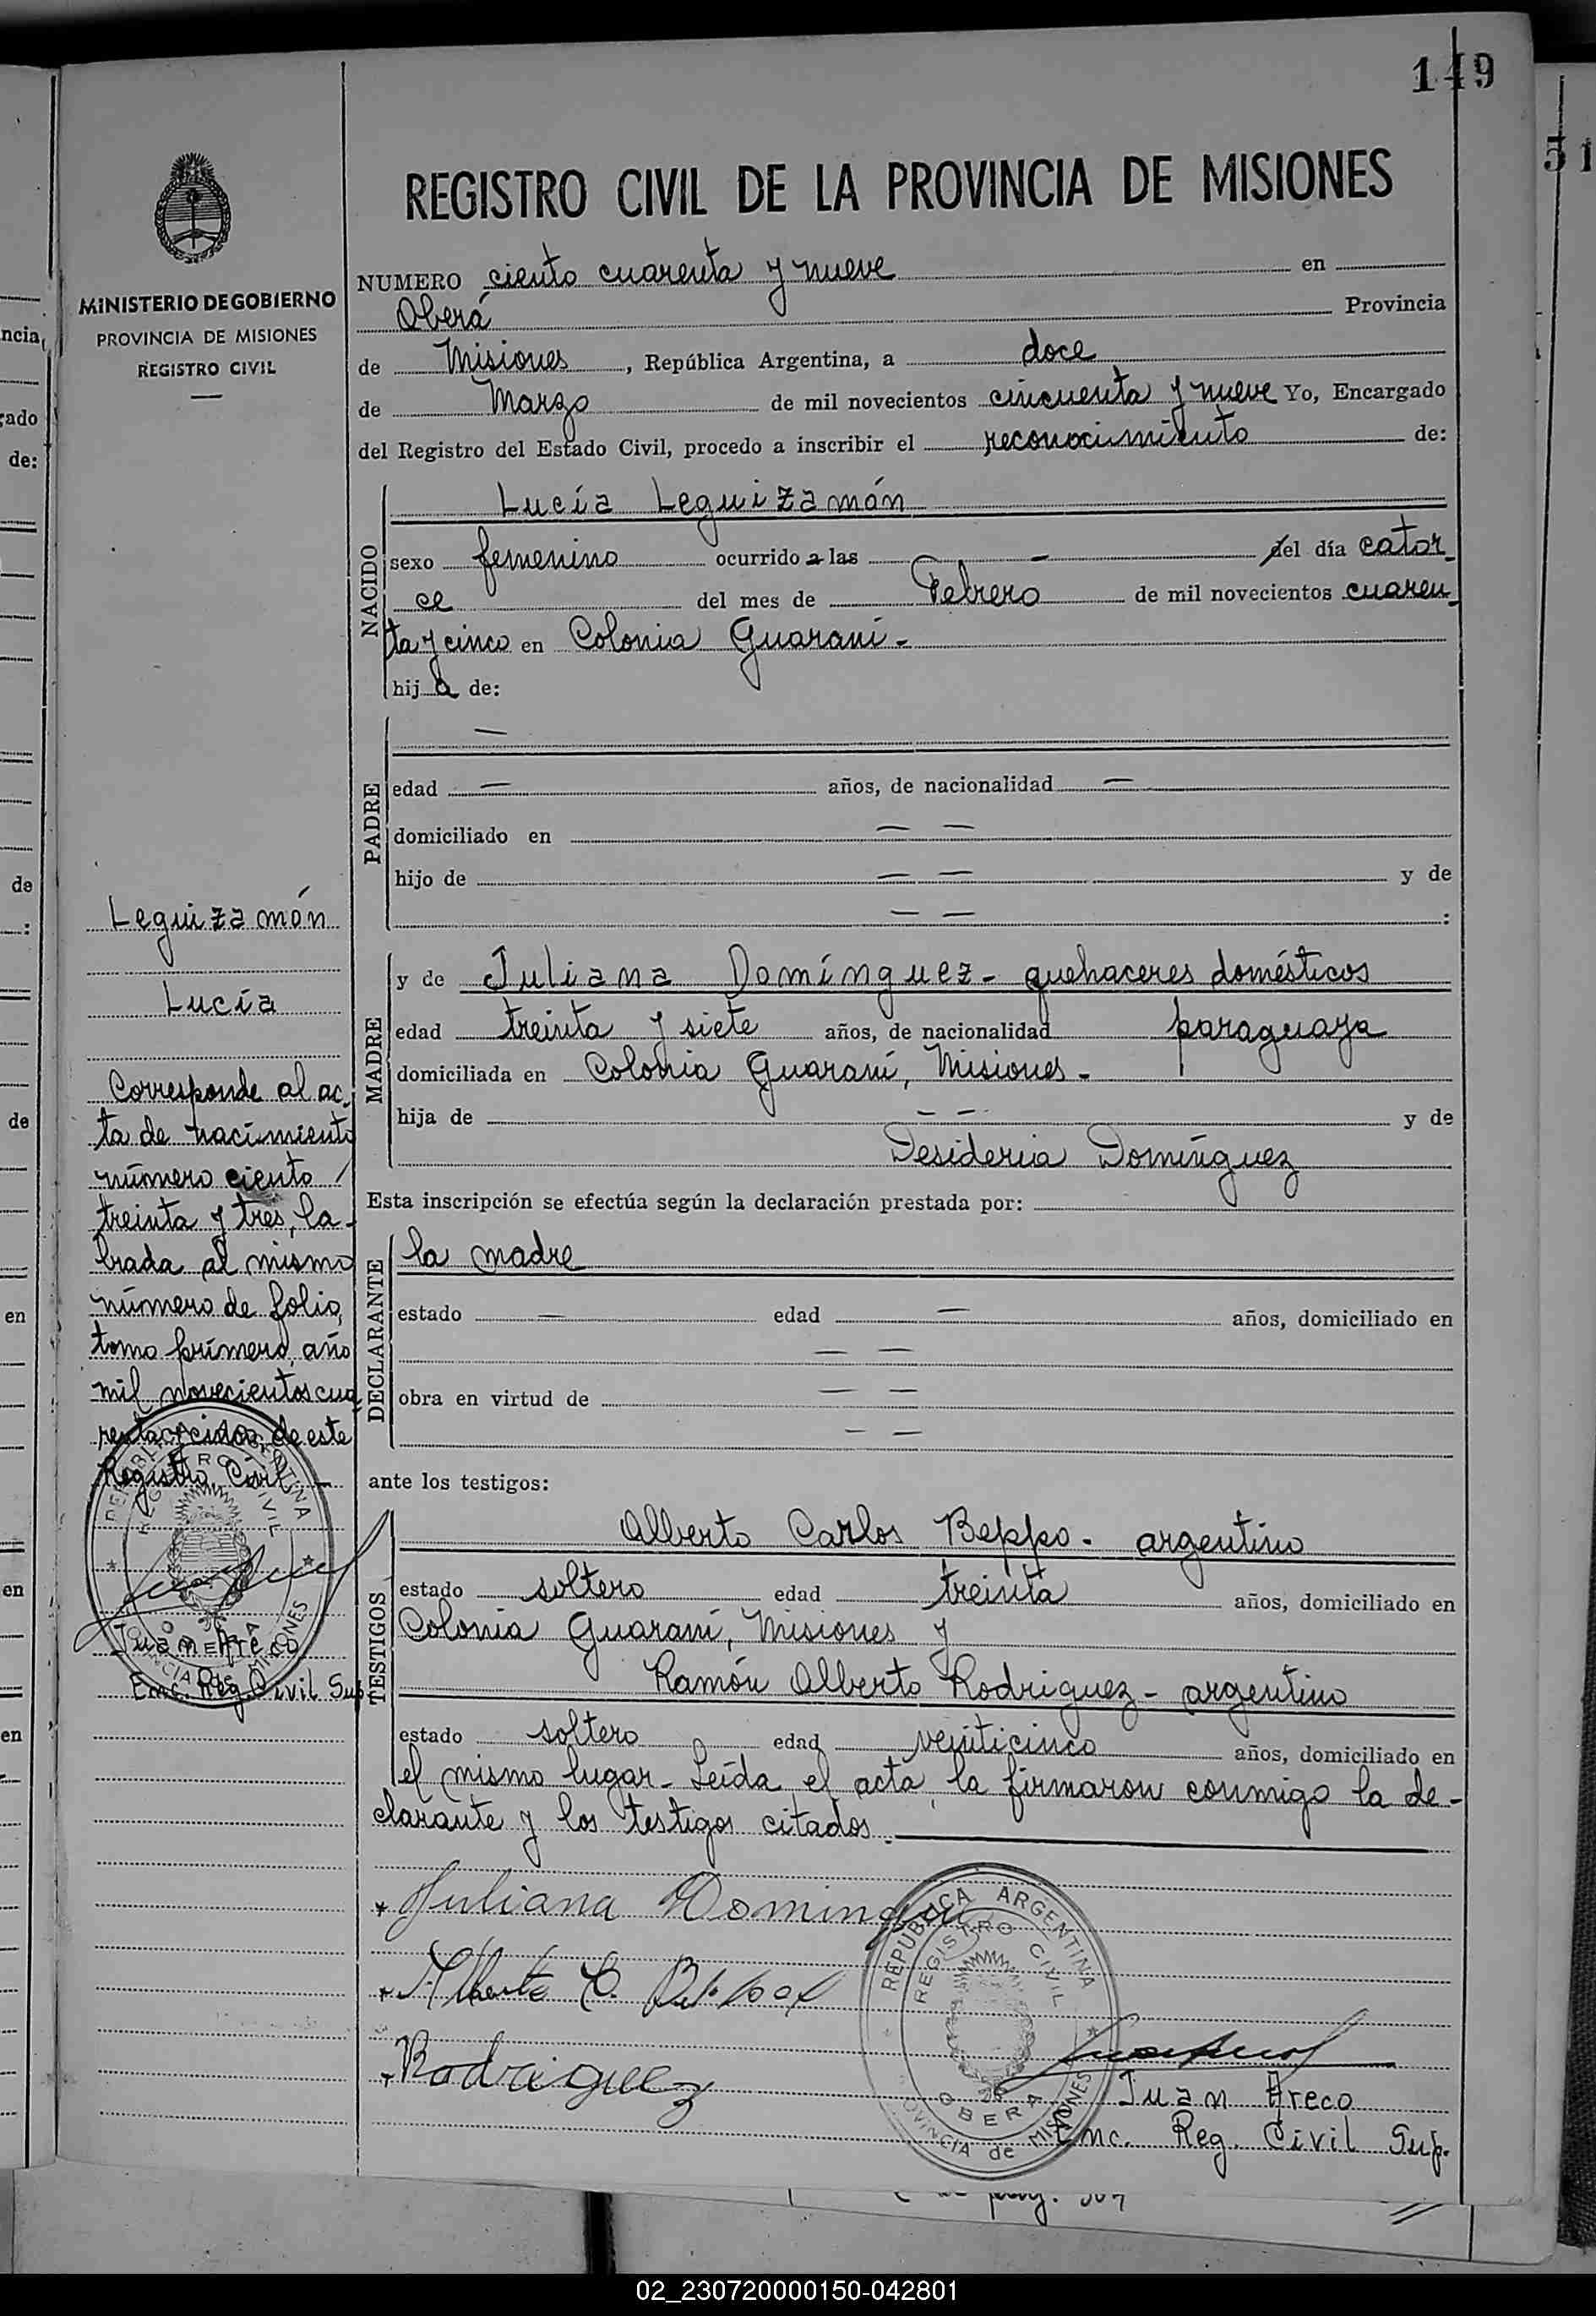 149
51
MINISTERIO DE GOBIERNO
PROVINCIA DE MISIONES
REGISTRO CIVIL
REGISTRO CIVIL DE LA PROVINCIA DE MISIONES
NUMERO ciento cuarenta y nueve en
Oberá Provincia
de Misiones, República Argentina, a doce
de Marzo de mil novecientos cincuenta y nueve Yo, Encargado
del Registro del Estado Civil, procedo a inscribir el reconocimiento de:
NACIDO
Lucía Leguizamón
sexo femenino ocurrido a las - del día cator-
ce del mes de Febrero de mil novecientos cuaren-
ta y cinco en Colonia Guaraní -
hija de:
PADRE
—
edad — años, de nacionalidad —
domiciliado en — —
hijo de — — y de
— — :
MADRE
y de Juliana Domínguez - quehaceres domésticos
edad treinta y siete años, de nacionalidad paraguaya
domiciliada en Colonia Guaraní, Misiones -
hija de — — y de
Desideria Domínguez
Esta inscripción se efectúa según la declaración prestada por:
DECLARANTE
la madre
estado — edad — años, domiciliado en
— —
obra en virtud de — —
— —
ante los testigos:
TESTIGOS
Alberto Carlos Beppo - argentino
estado soltero edad treinta años, domiciliado en
Colonia Guaraní, Misiones y
Ramón Alberto Rodriguez - argentino
estado soltero edad veinticinco años, domiciliado en
el mismo lugar - Leída el acta, la firmaron conmigo la de-
clarante y los testigos citados.
Juliana Dominguez
Alberto C. Beppo
Rodriguez
REPUBLICA ARGENTINA
REGISTRO CIVIL
OBERA
PROVINCIA de MISIONES
Juan Areco
Enc. Reg. Civil Sup.
Leguizamón
Lucía
Corresponde al ac-
ta de nacimiento
número ciento
treinta y tres, la-
brada al mismo
número de folio,
tomo primero, año
mil novecientos cua-
renta y cinco, de este
Registro Civil -
REPUBLICA ARGENTINA
REGISTRO CIVIL
OBERA
PROVINCIA de MISIONES
Juan Areco
Enc. Reg. Civil Sup.
ncia,
gado
de:
de
:
de
en
en
en
02_230720000150-042801